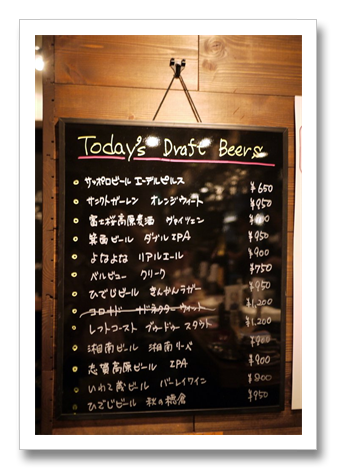 Today's Draft Beers
サッポロビール エーデルピルス ¥650
サンクトガーレン オレンジウィート ¥950
富士桜高原麦酒 ヴァイツェン
箕面ビール ダブルIPA ¥950
よなよな リアルエール ¥900
ベルビュー クリーク ¥750
ひでじビール きんかんラガー ¥950
コロラド ウィット ¥1,200
レフトコースト ブードゥー スタウト ¥1,200
湘南ビール 湘南リーベ ¥900
志賀高原ビール IPA ¥900
いわて蔵ビール バーレイワイン ¥800
ひでじビール 秋の ¥950